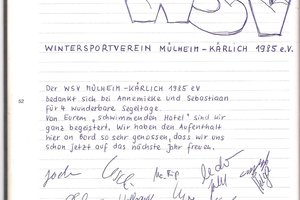 WSV
WINTERSPORTVEREIN MÜLHEIM-KÄRLICH 1985 e.V.
DER WSV MÜLHEIM-KÄRLICH 1985 eV
bedankt sich bei Annemieke und Sebastiaan
für 4 wunderbare Segeltage.
Von Eurem "schwimmenden Hotel" sind wir
ganz begeistert. Wir haben den Aufenthalt
hier an Bord so sehr genossen, dass wir uns
schon jetzt auf das nächste Jahr freuen.
52